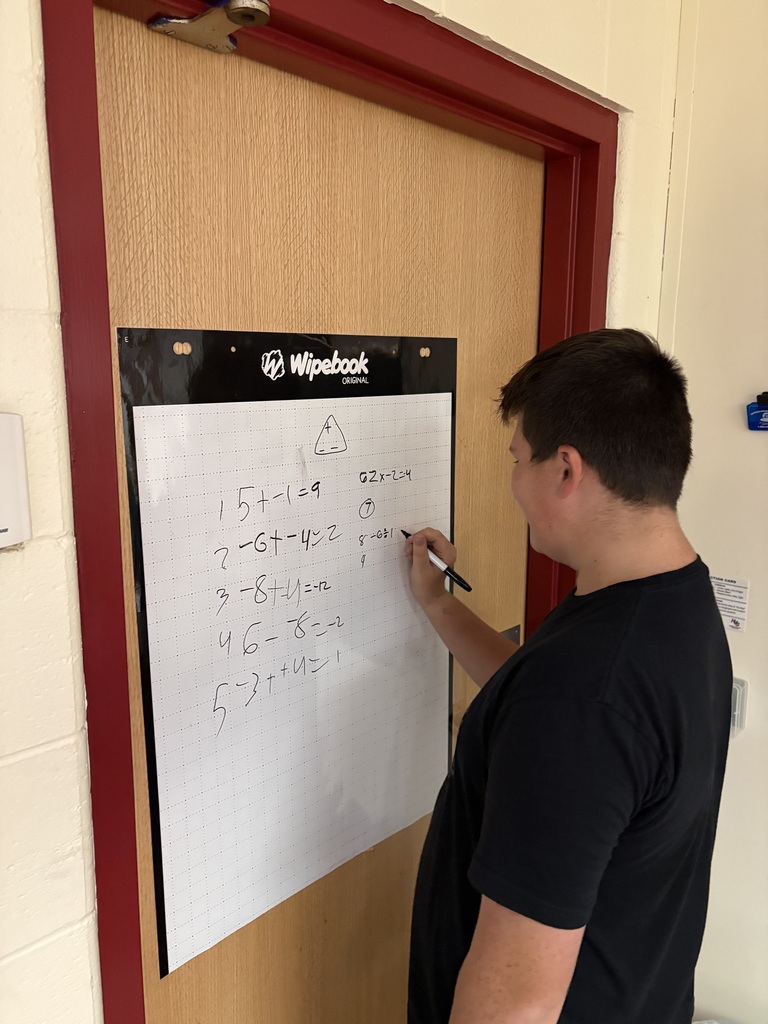 E
Wipebook
ORIGINAL
+
- -
1 5+-1=9
2 -6+-4=2
3 -8+4=-12
4 6--8=-2
5 -3++4=1
6 2x-2=4
7
8 -6÷1
9